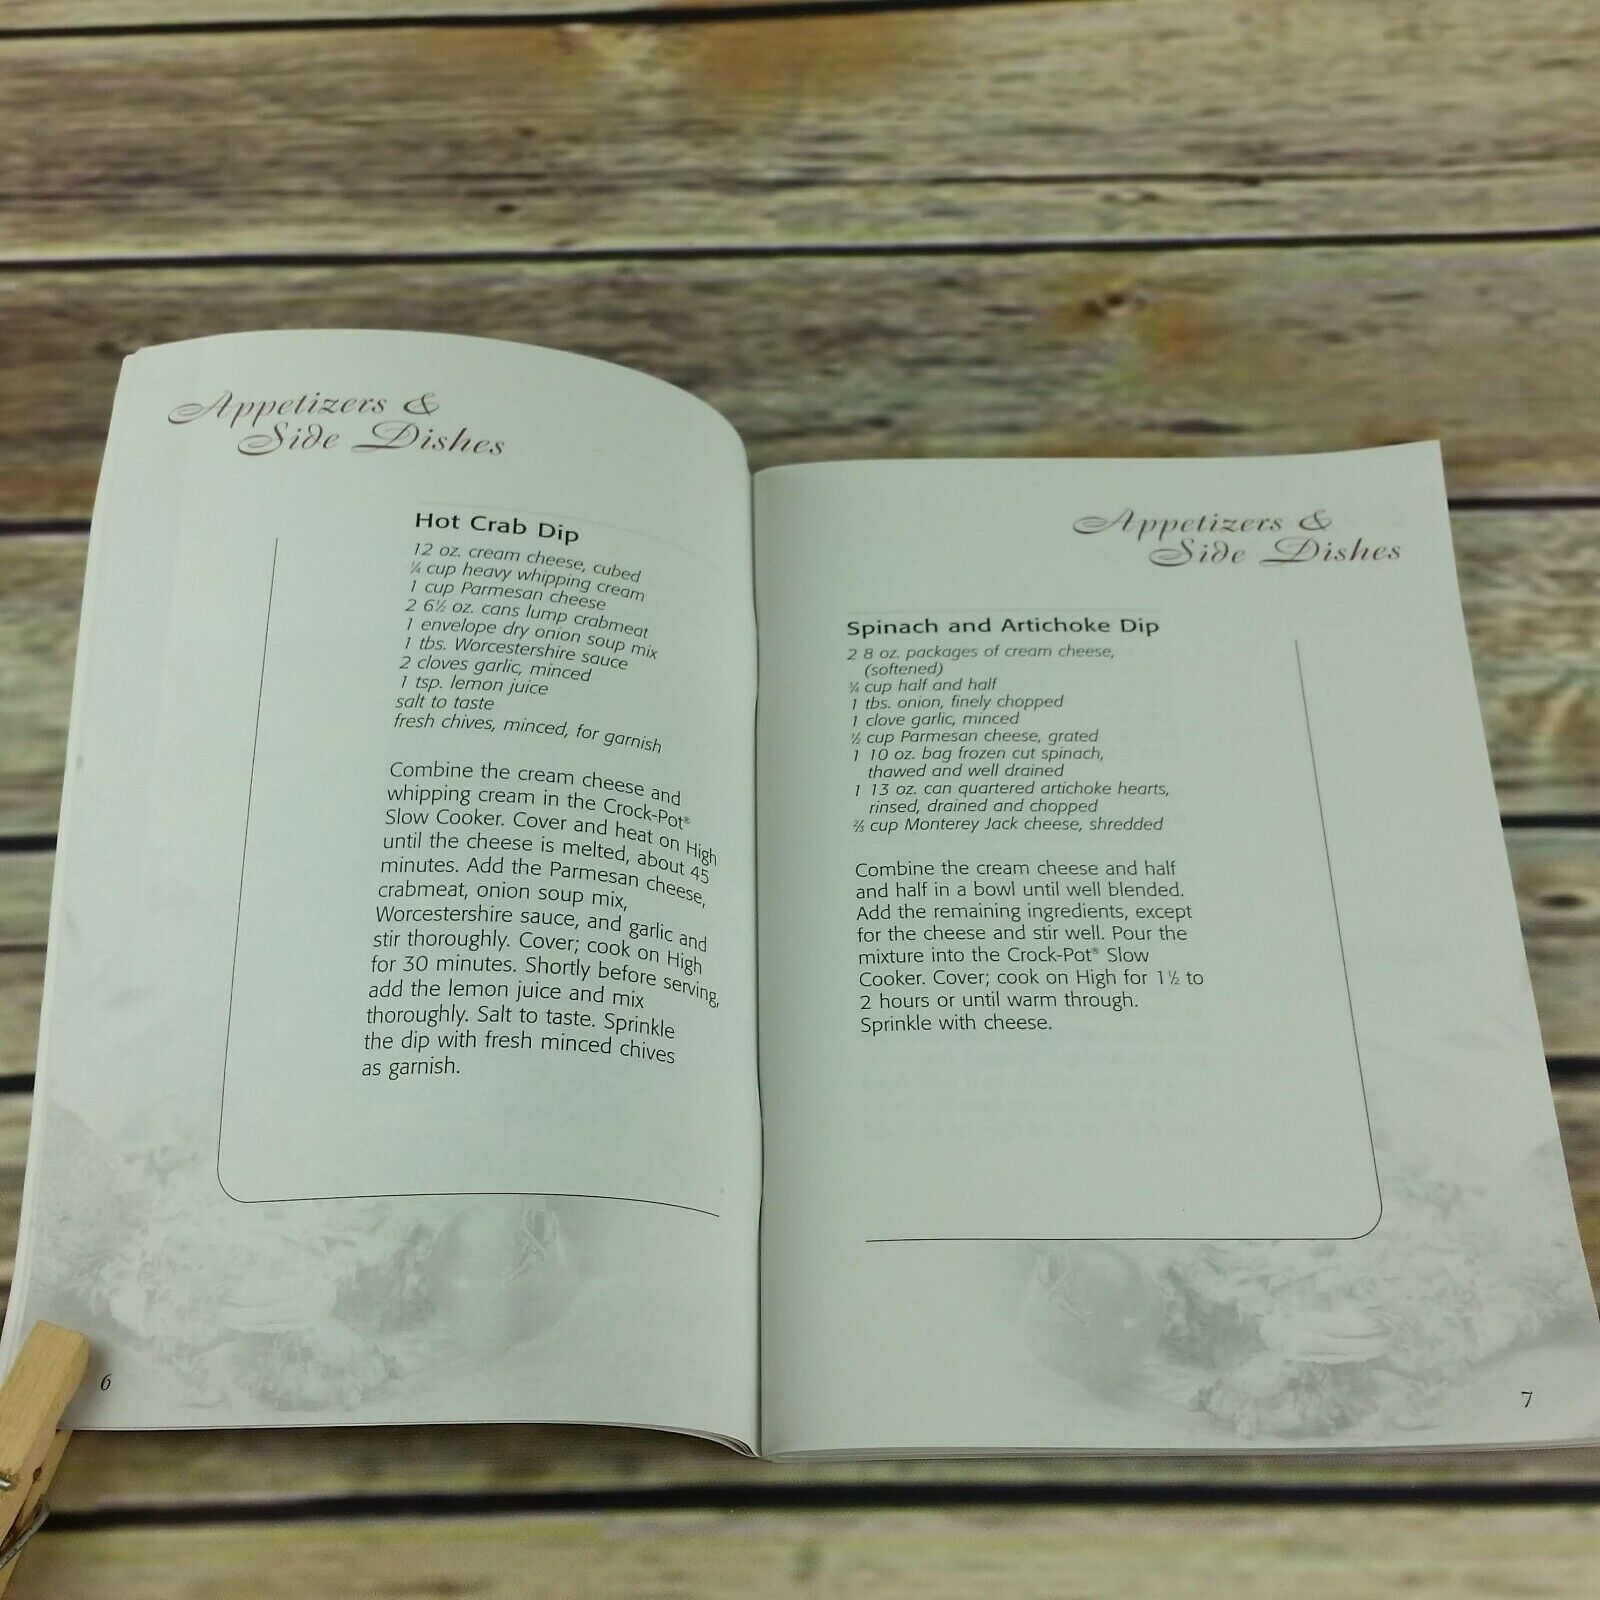 Appetizers &
Side Dishes
Hot Crab Dip
12 oz. cream cheese, cubed
¼ cup heavy whipping cream
1 cup Parmesan cheese
2 6½ oz. cans lump crabmeat
1 envelope dry onion soup mix
1 tbs. Worcestershire sauce
2 cloves garlic, minced
1 tsp. lemon juice
salt to taste
fresh chives, minced, for garnish
Combine the cream cheese and
whipping cream in the Crock-Pot®
Slow Cooker. Cover and heat on High
until the cheese is melted, about 45
minutes. Add the Parmesan cheese,
crabmeat, onion soup mix,
Worcestershire sauce, and garlic and
stir thoroughly. Cover; cook on High
for 30 minutes. Shortly before serving,
add the lemon juice and mix
thoroughly. Salt to taste. Sprinkle
the dip with fresh minced chives
as garnish.
6
Appetizers &
Side Dishes
Spinach and Artichoke Dip
2 8 oz. packages of cream cheese,
(softened)
¼ cup half and half
1 tbs. onion, finely chopped
1 clove garlic, minced
½ cup Parmesan cheese, grated
1 10 oz. bag frozen cut spinach,
thawed and well drained
1 13 oz. can quartered artichoke hearts,
rinsed, drained and chopped
⅔ cup Monterey Jack cheese, shredded
Combine the cream cheese and half
and half in a bowl until well blended.
Add the remaining ingredients, except
for the cheese and stir well. Pour the
mixture into the Crock-Pot® Slow
Cooker. Cover; cook on High for 1½ to
2 hours or until warm through.
Sprinkle with cheese.
7